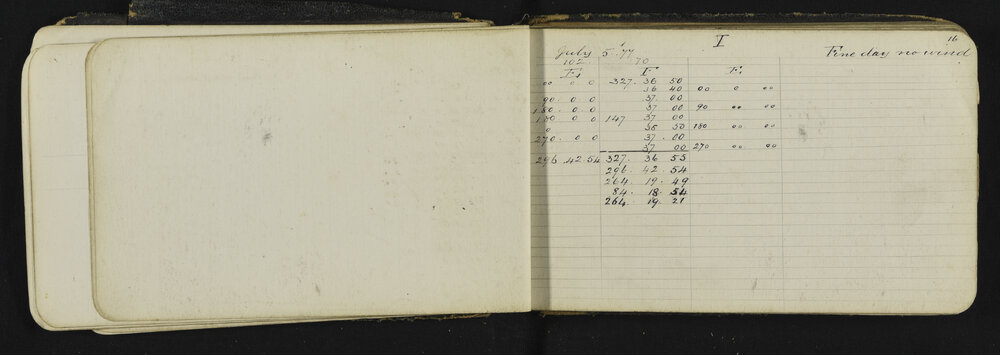 16
I
July 5 '77 Fine day no wind
102 70
E, F E,
00 0 0 327. 36 50
36 40 00 0 00
90. 0 0 37. 00
180. 0 0 37 00 90 00 00
180 0 0 147 37 00
0 36 50 180 00 00
270. 0 0 37. 00
37 00 270 00 00
296. 42. 54 327. 36 55
296. 42. 54
264. 19. 49
84. 18. 54
264. 19. 21